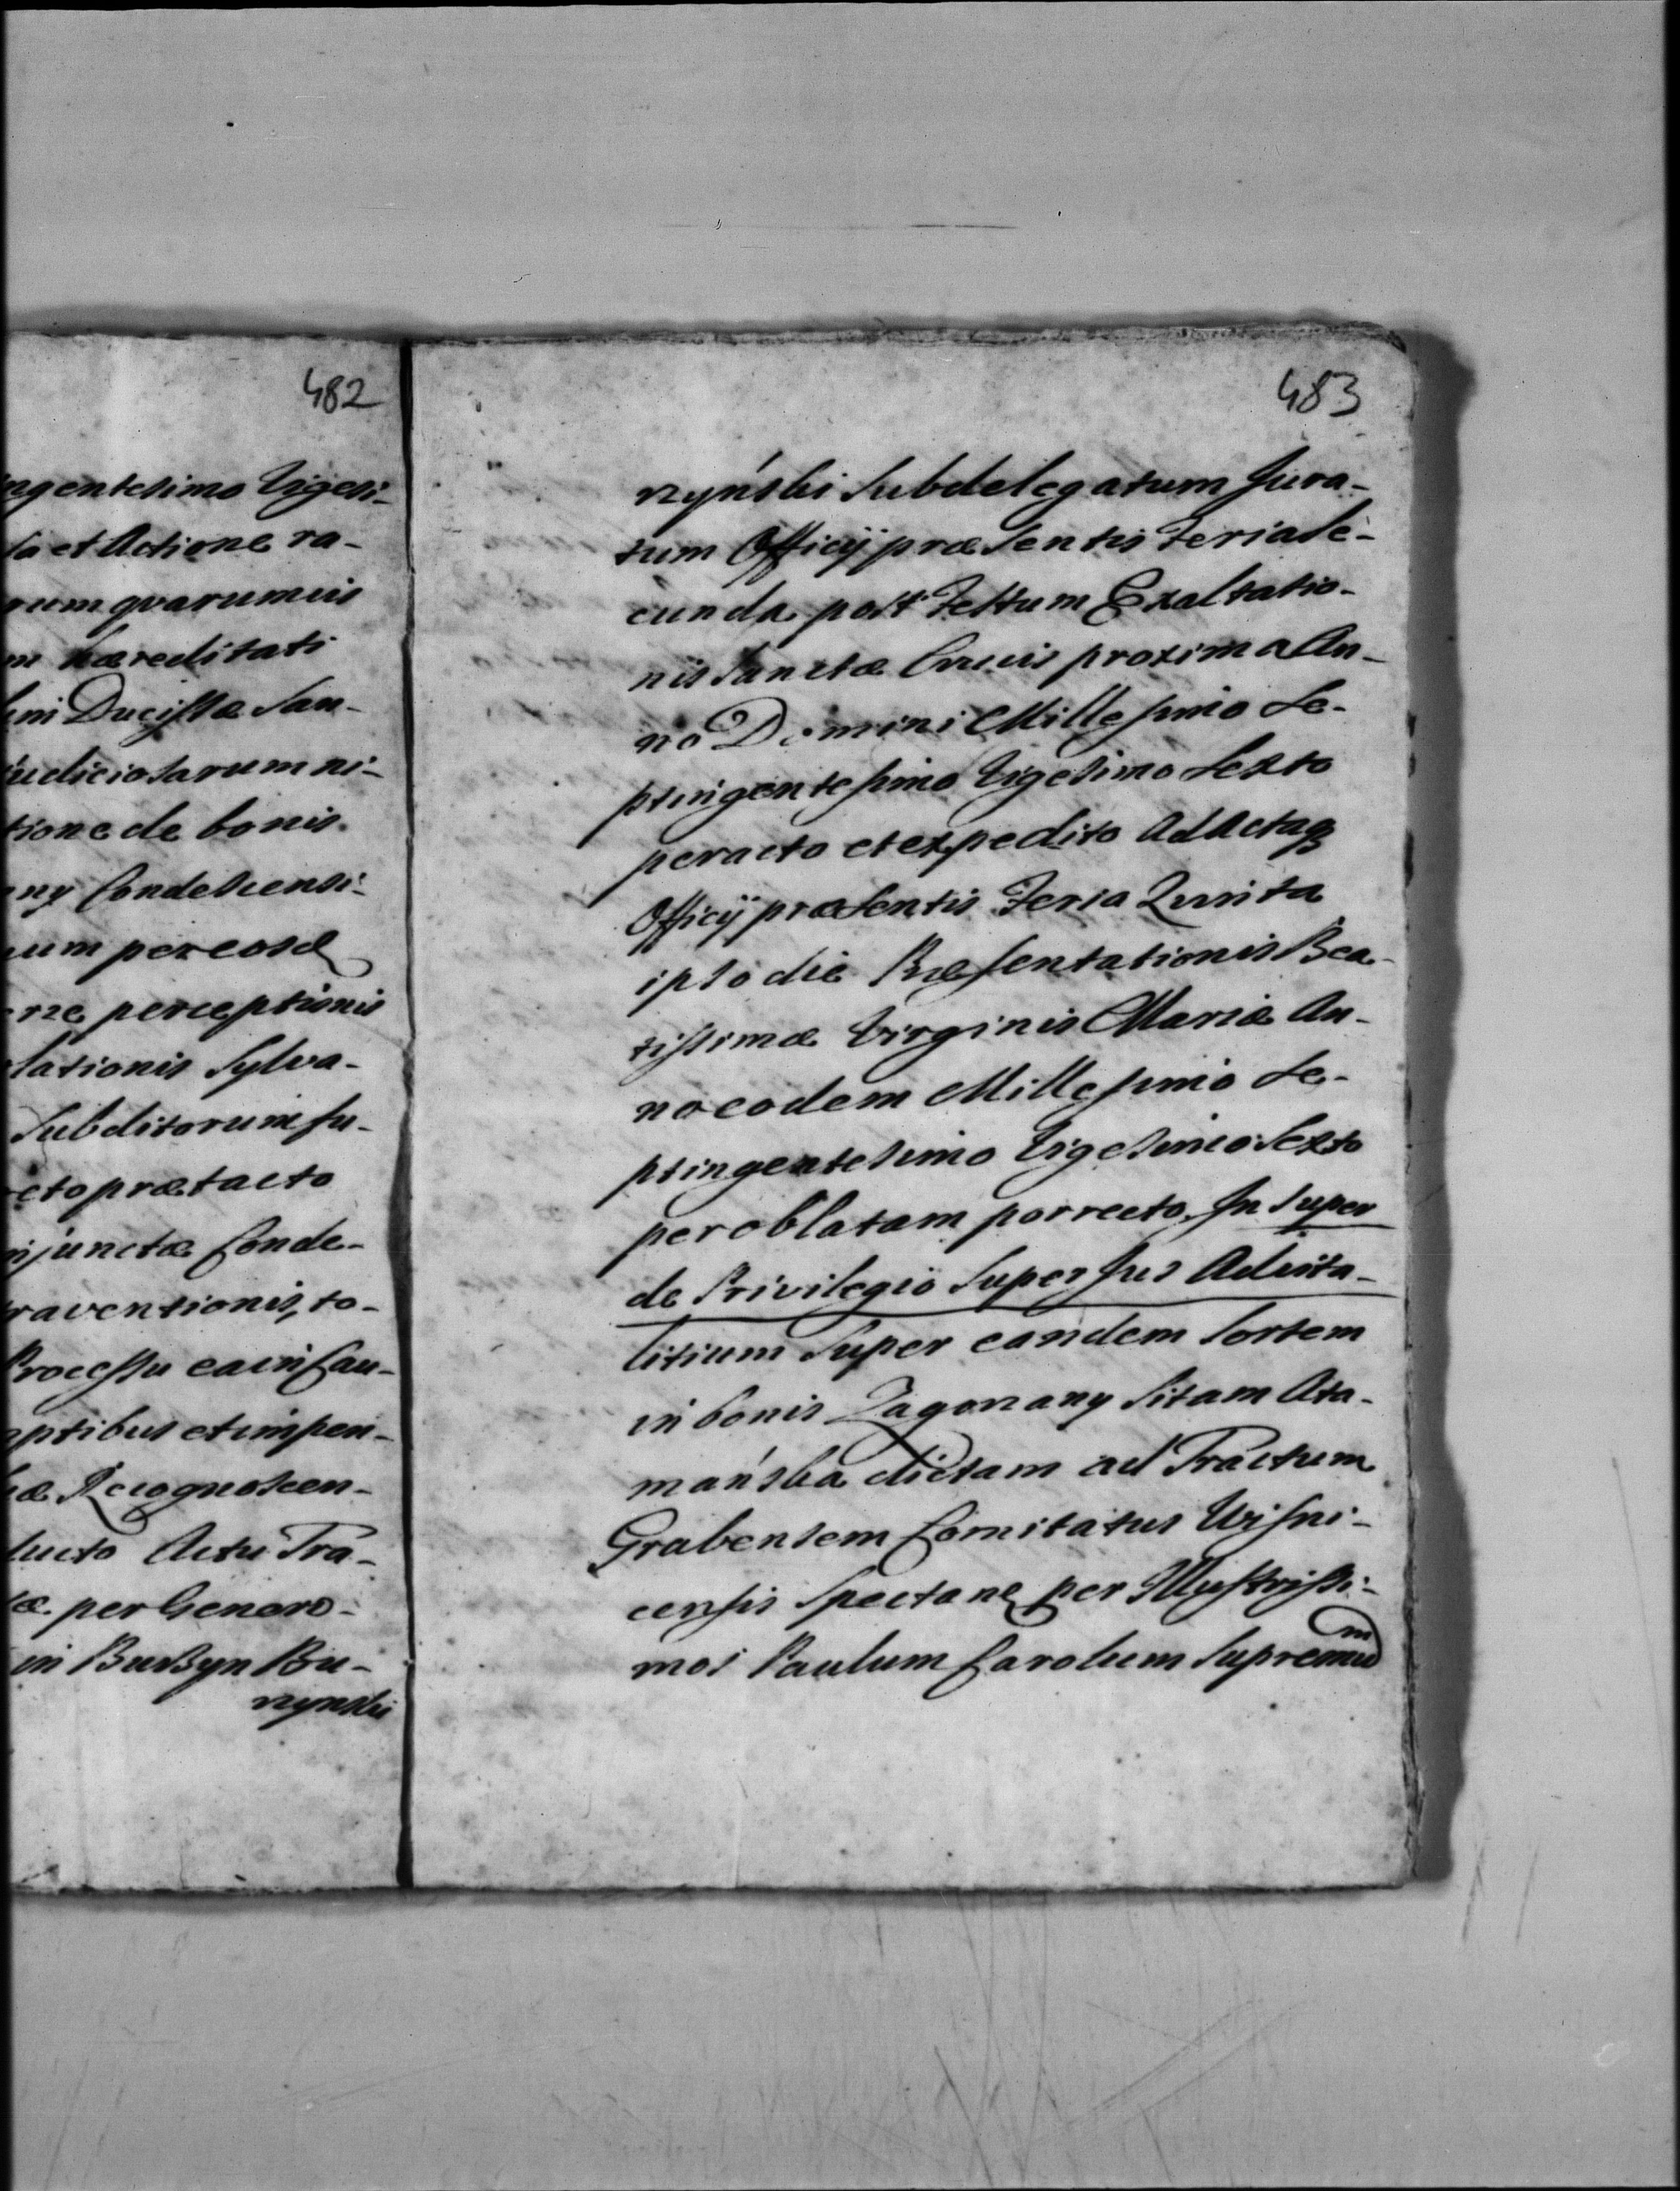 482
ingentesimo Vigesi-
la et Actione ra-
rum qvarumvis
m hæreditati
Ducissæ San-
judiciosarum ni-
tione de bonis
Condescensi-
um per eosd
perceptionis
lationis Sylva-
Subditorum su-
cto prætacto
njunctæ Conde-
raventionis, to-
Processu ea in Cau-
mptibus et impen-
æ Recognoscen-
ducto Actu Tra-
æ per Genero-
in Burzyn Bu-
rzynski
483
rzyński Subdelegatum Jura-
tum Officij præsentis Feria Se-
cunda post Festum Exaltatio-
nis Sanctæ Crucis proxima An-
no Domini Millesimo Se-
ptingentesimo Vigesimo Sexto
peracto et expedito Ad Actaq
Officij præsentis Feria Quinta
ipso die Præsentationis Bea-
tissimæ Virginis Mariæ An-
no eodem Millesimo Se-
ptingentesimo Vigesimo Sexto
per oblatam porrecto. In Super
de Privilegio Super Jus Advita-
litium Super eandem Sortem
in bonis Zagorzany Sitam Ata-
mańska dictam ad Tractum
Grabensem Comitatus Wisni-
censis Spectan per Illustrissi-
mos Paulum Carolum Supremum